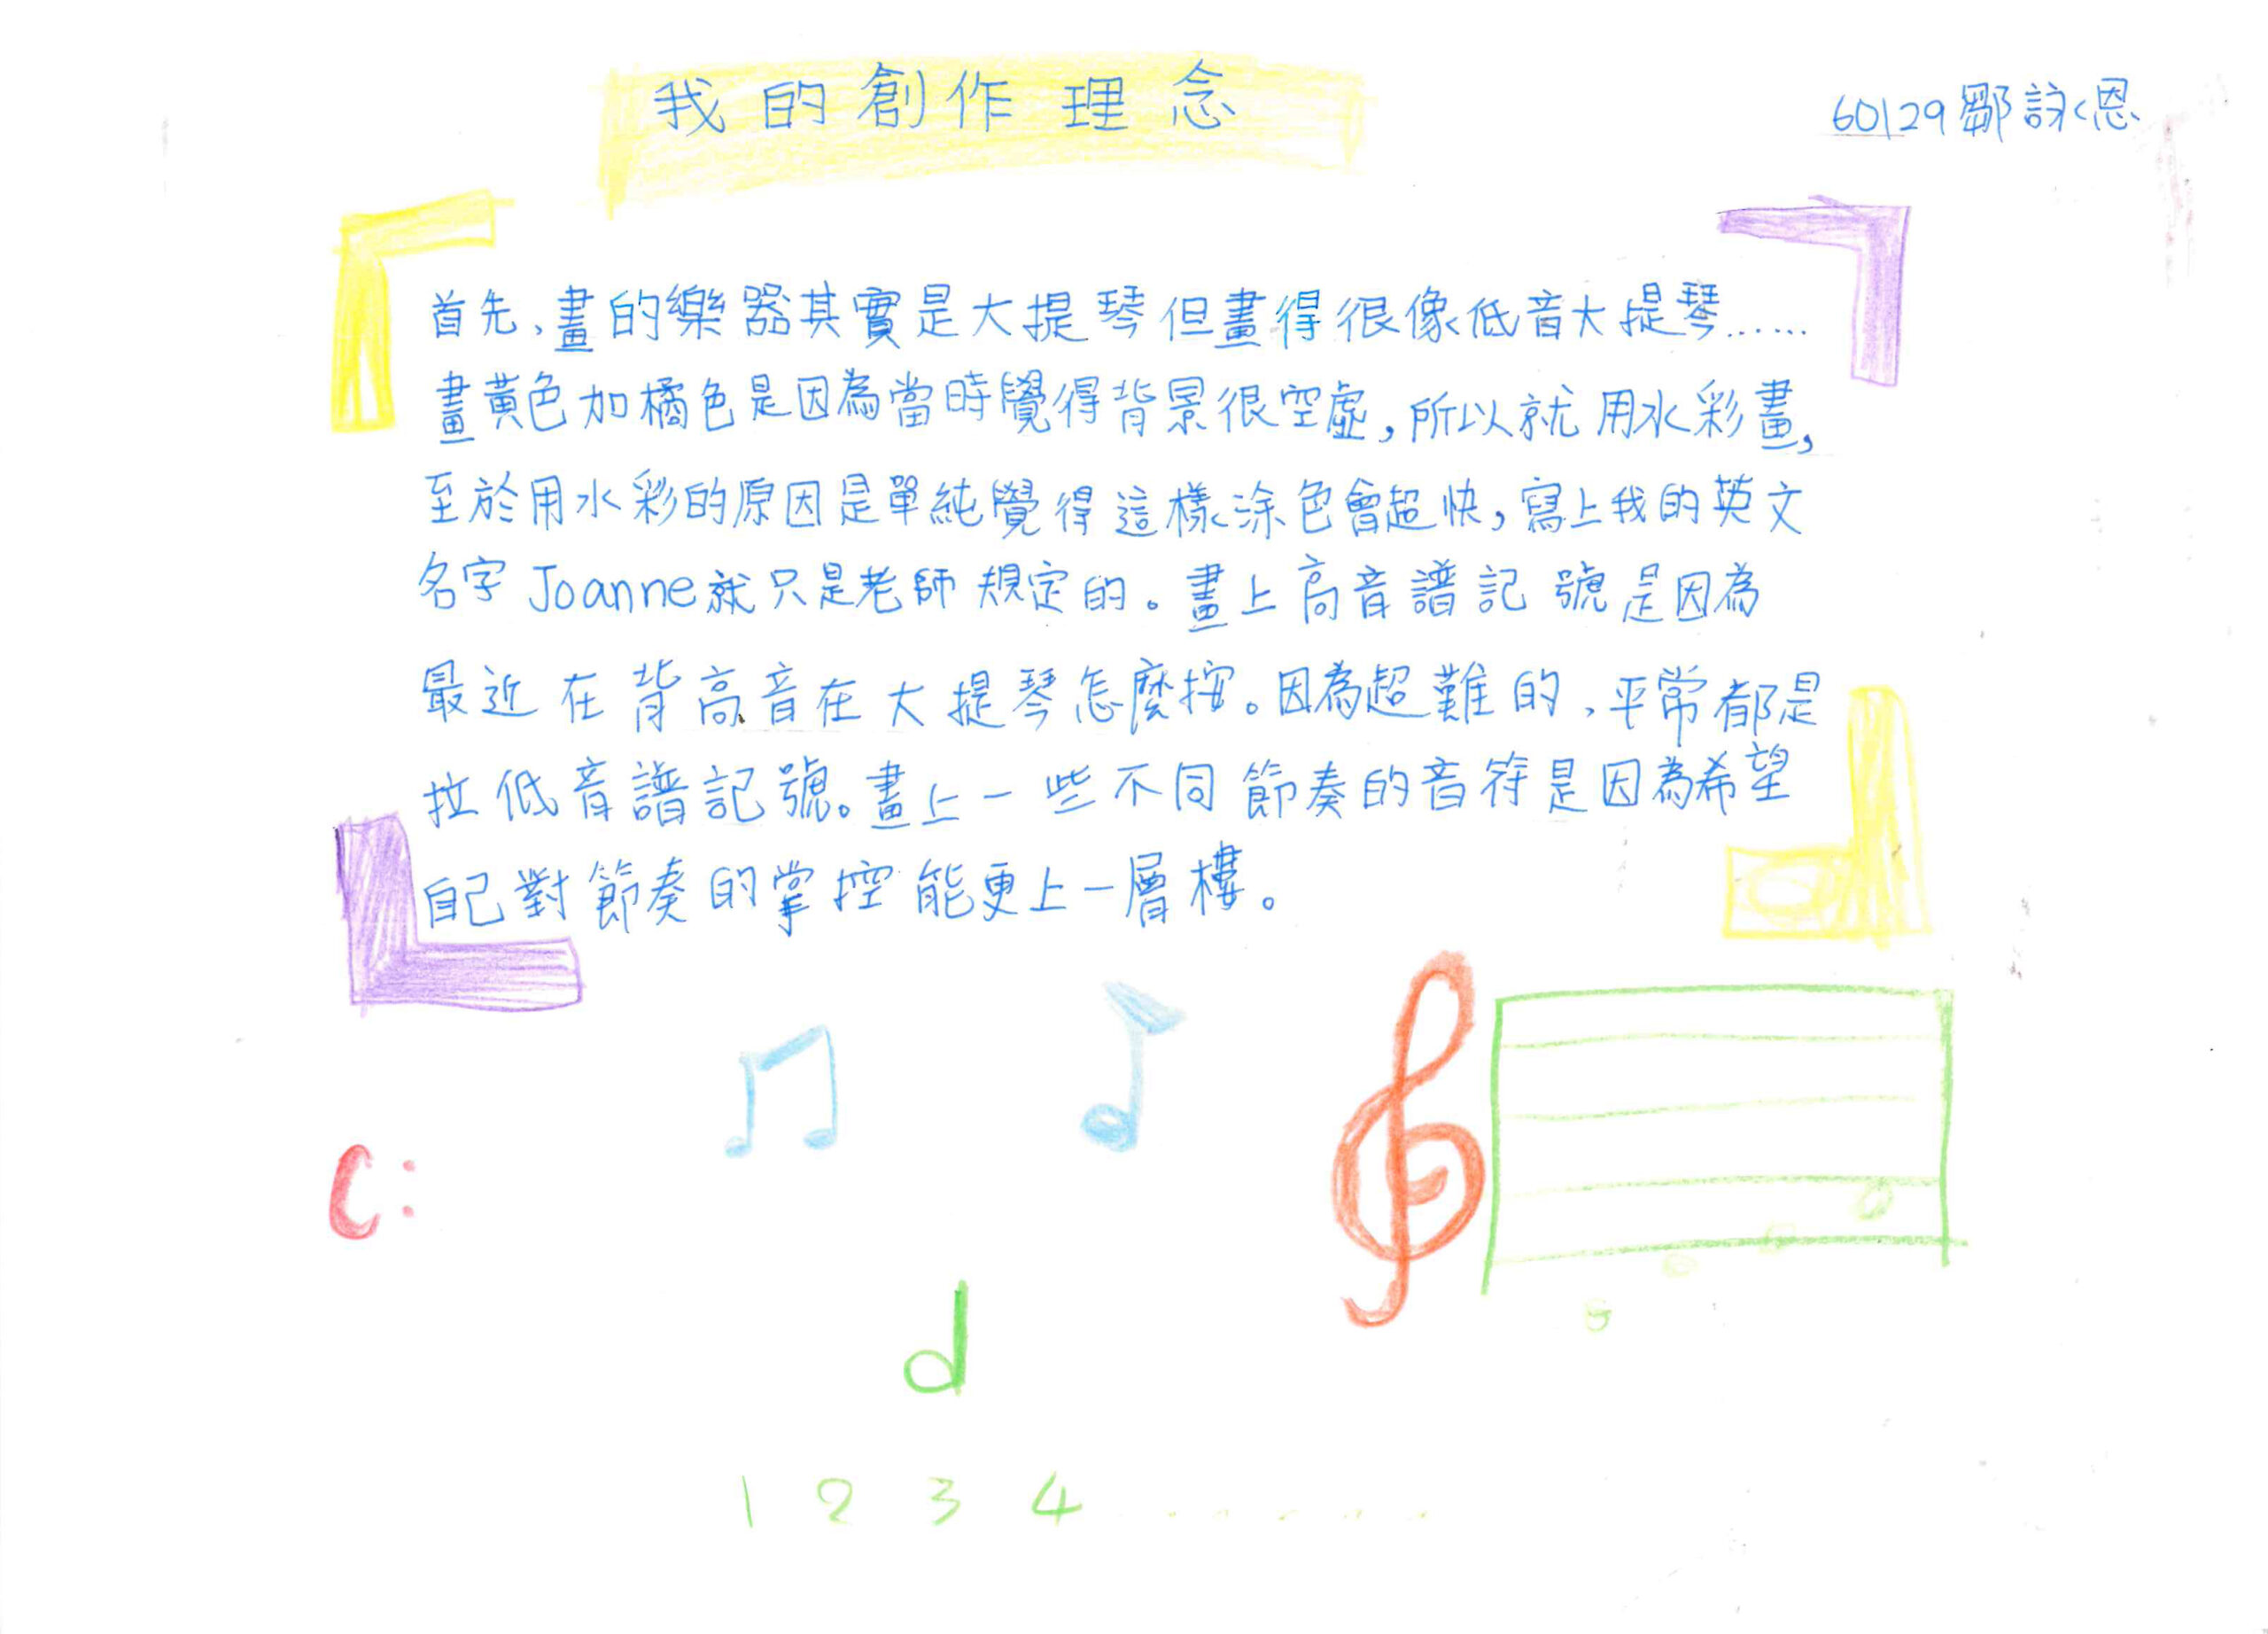 我的創作理念
60129鄒詠恩
首先、畫的樂器其實是大提琴但畫得很像低音大提琴……
畫黃色加橘色是因為當時覺得背景很空虛，所以就用水彩畫，
至於用水彩的原因是單純覺得這樣涂色會超快，寫上我的英文
名字Joanne就只是老師規定的。畫上高音譜記號是因為
最近在背高音在大提琴怎麼按。因為超難的、平常都是
拉低音譜記號。畫上一些不同節奏的音符是因為希望
自己對節奏的掌控能更上一層樓。
C:
1 2 3 4 ......